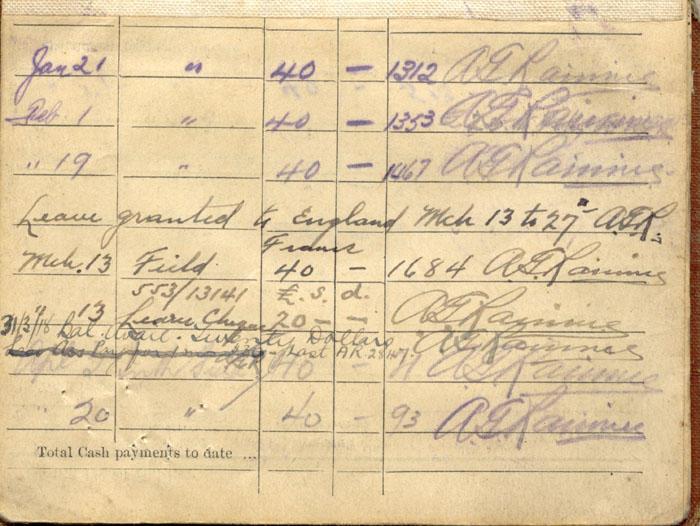 Jan 21 " 40 — 1312 A G Rainnie
Feb. 1 " 40 — 1353 A G Rainnie
" 19 " 40 — 1467 A G Rainnie
Leave granted to England Mch 13 to 27" A.G.R.
Francs
Mch. 13 Field 40 — 1684 A G Rainnie
553/13141 £. s. d.
" 13 Leave Cheque 20 — — A G Rainnie
31/3/18 Bal. avail. Dollars A G Rainnie
Last A.R.
40 — A G Rainnie
" 20 " 40 — 93 A G Rainnie
Total Cash payments to date ...